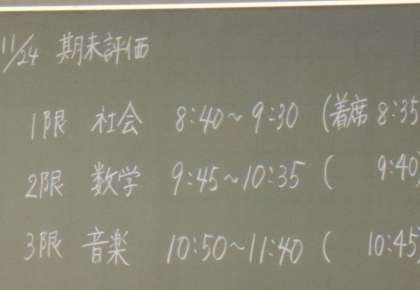 11/24 期末評価
1限 社会 8:40~9:30 (着席 8:35
2限 数学 9:45~10:35 ( 9:40)
3限 音楽 10:50~11:40 ( 10:45)